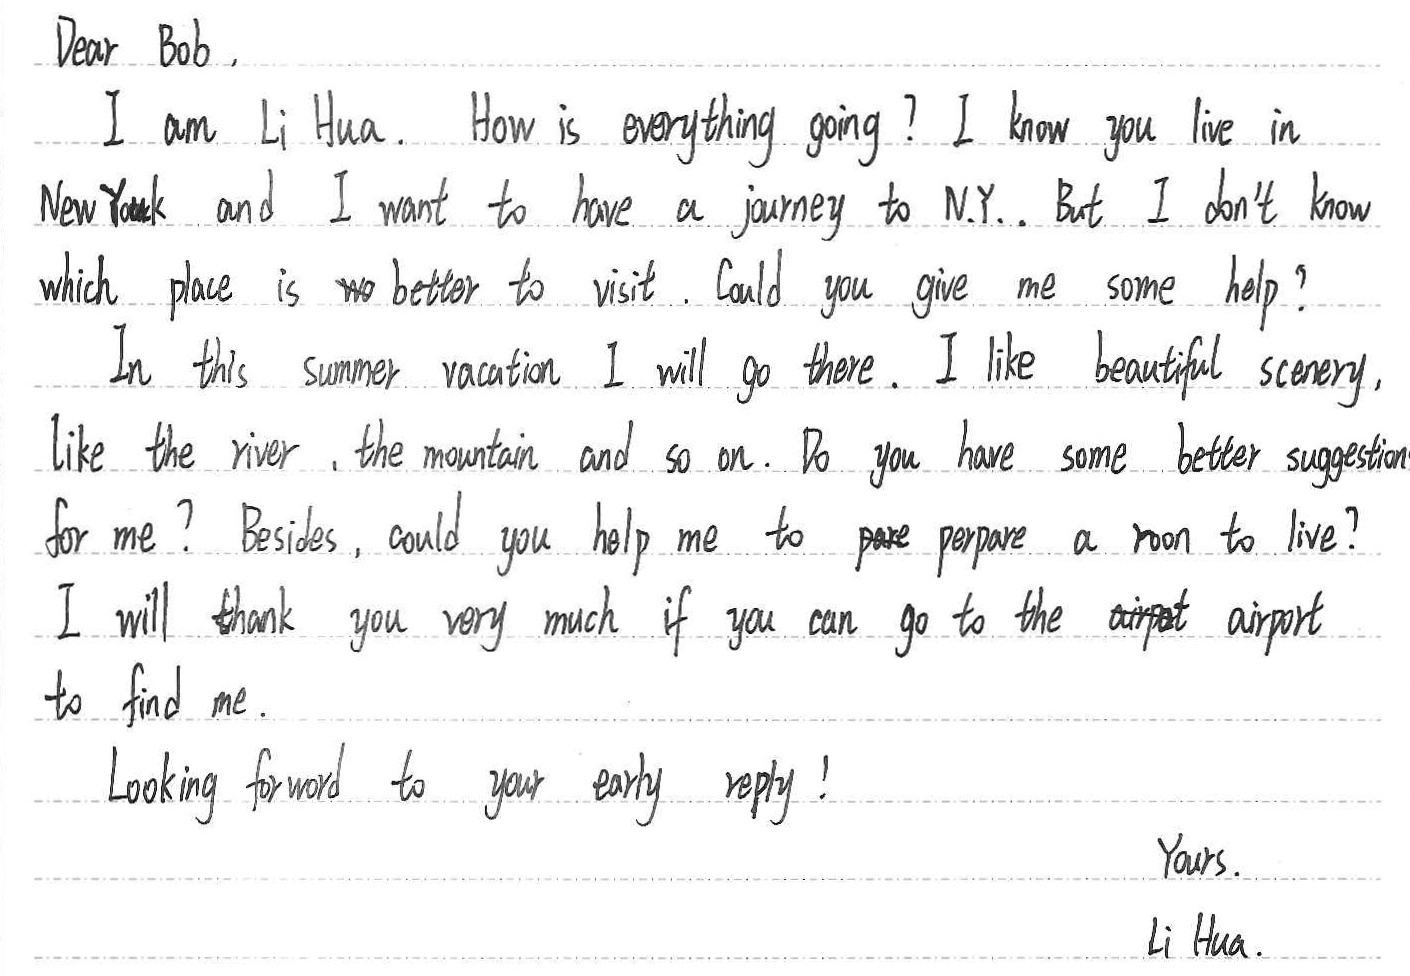 Dear Bob,
I am Li Hua. How is everything going? I know you live in
New York and I want to have a journey to N.Y.. But I don't know
which place is better to visit. Could you give me some help?
In this summer vacation I will go there. I like beautiful scenery,
like the river, the mountain and so on. Do you have some better suggestions
for me? Besides, could you help me to perpare a roon to live?
I will thank you very much if you can go to the airport
to find me.
Looking forword to your early reply!
Yours.
Li Hua.